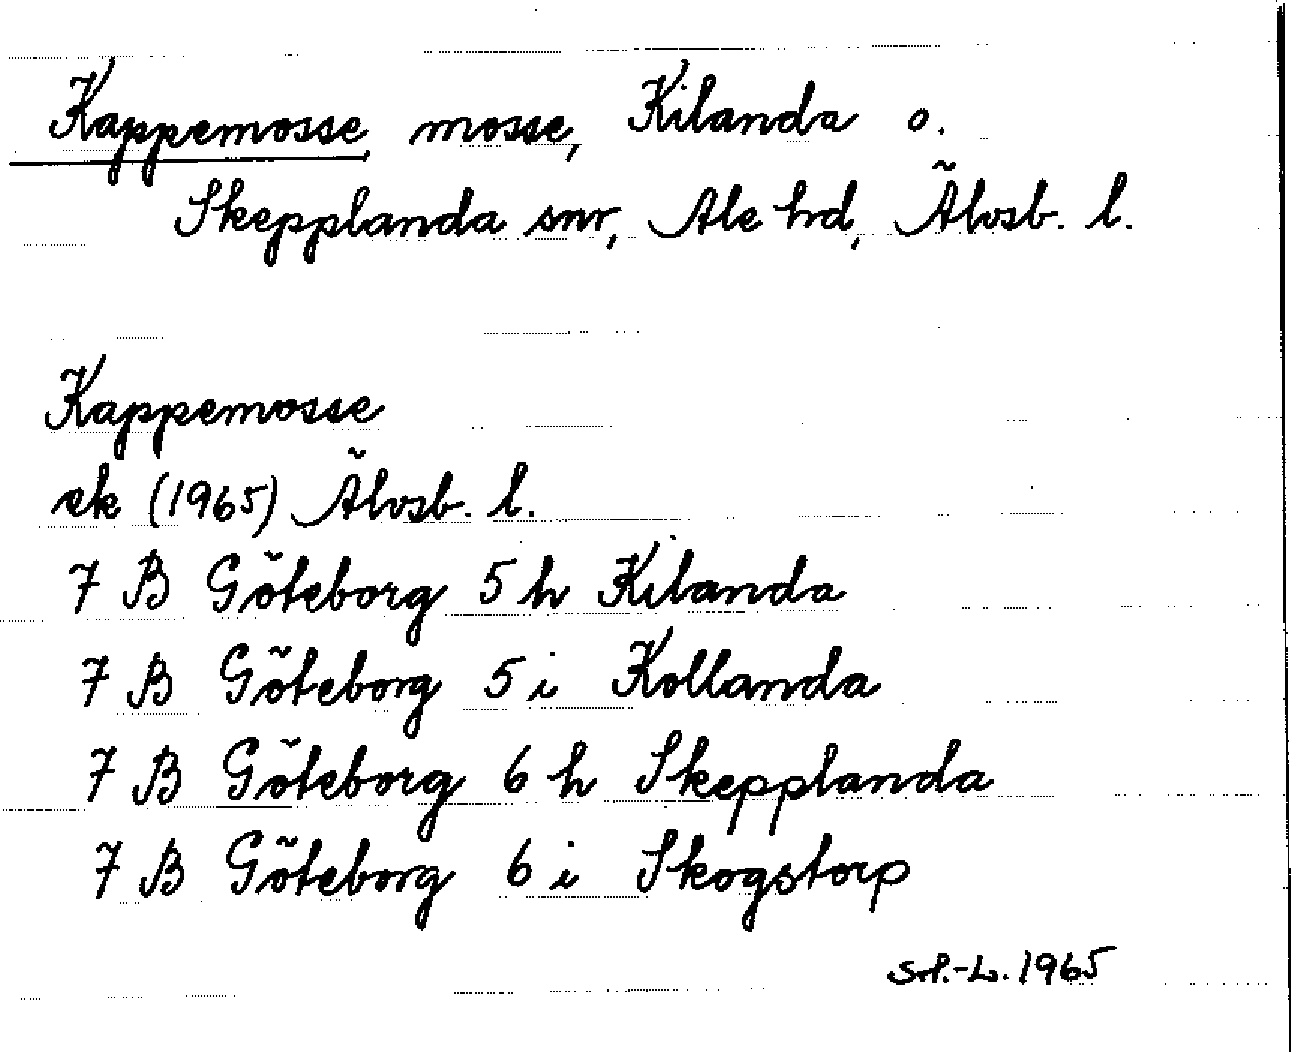 Kappemosse, mosse, Kilanda o.
Skepplanda snr, Ale hd, Älvsb. l.
Kappemosse
ek (1965) Älvsb. l.
7 B Göteborg 5 h Kilanda
7 B Göteborg 5 i Kollanda
7 B Göteborg 6 h Skepplanda
7 B Göteborg 6 i Skogstorp
1965